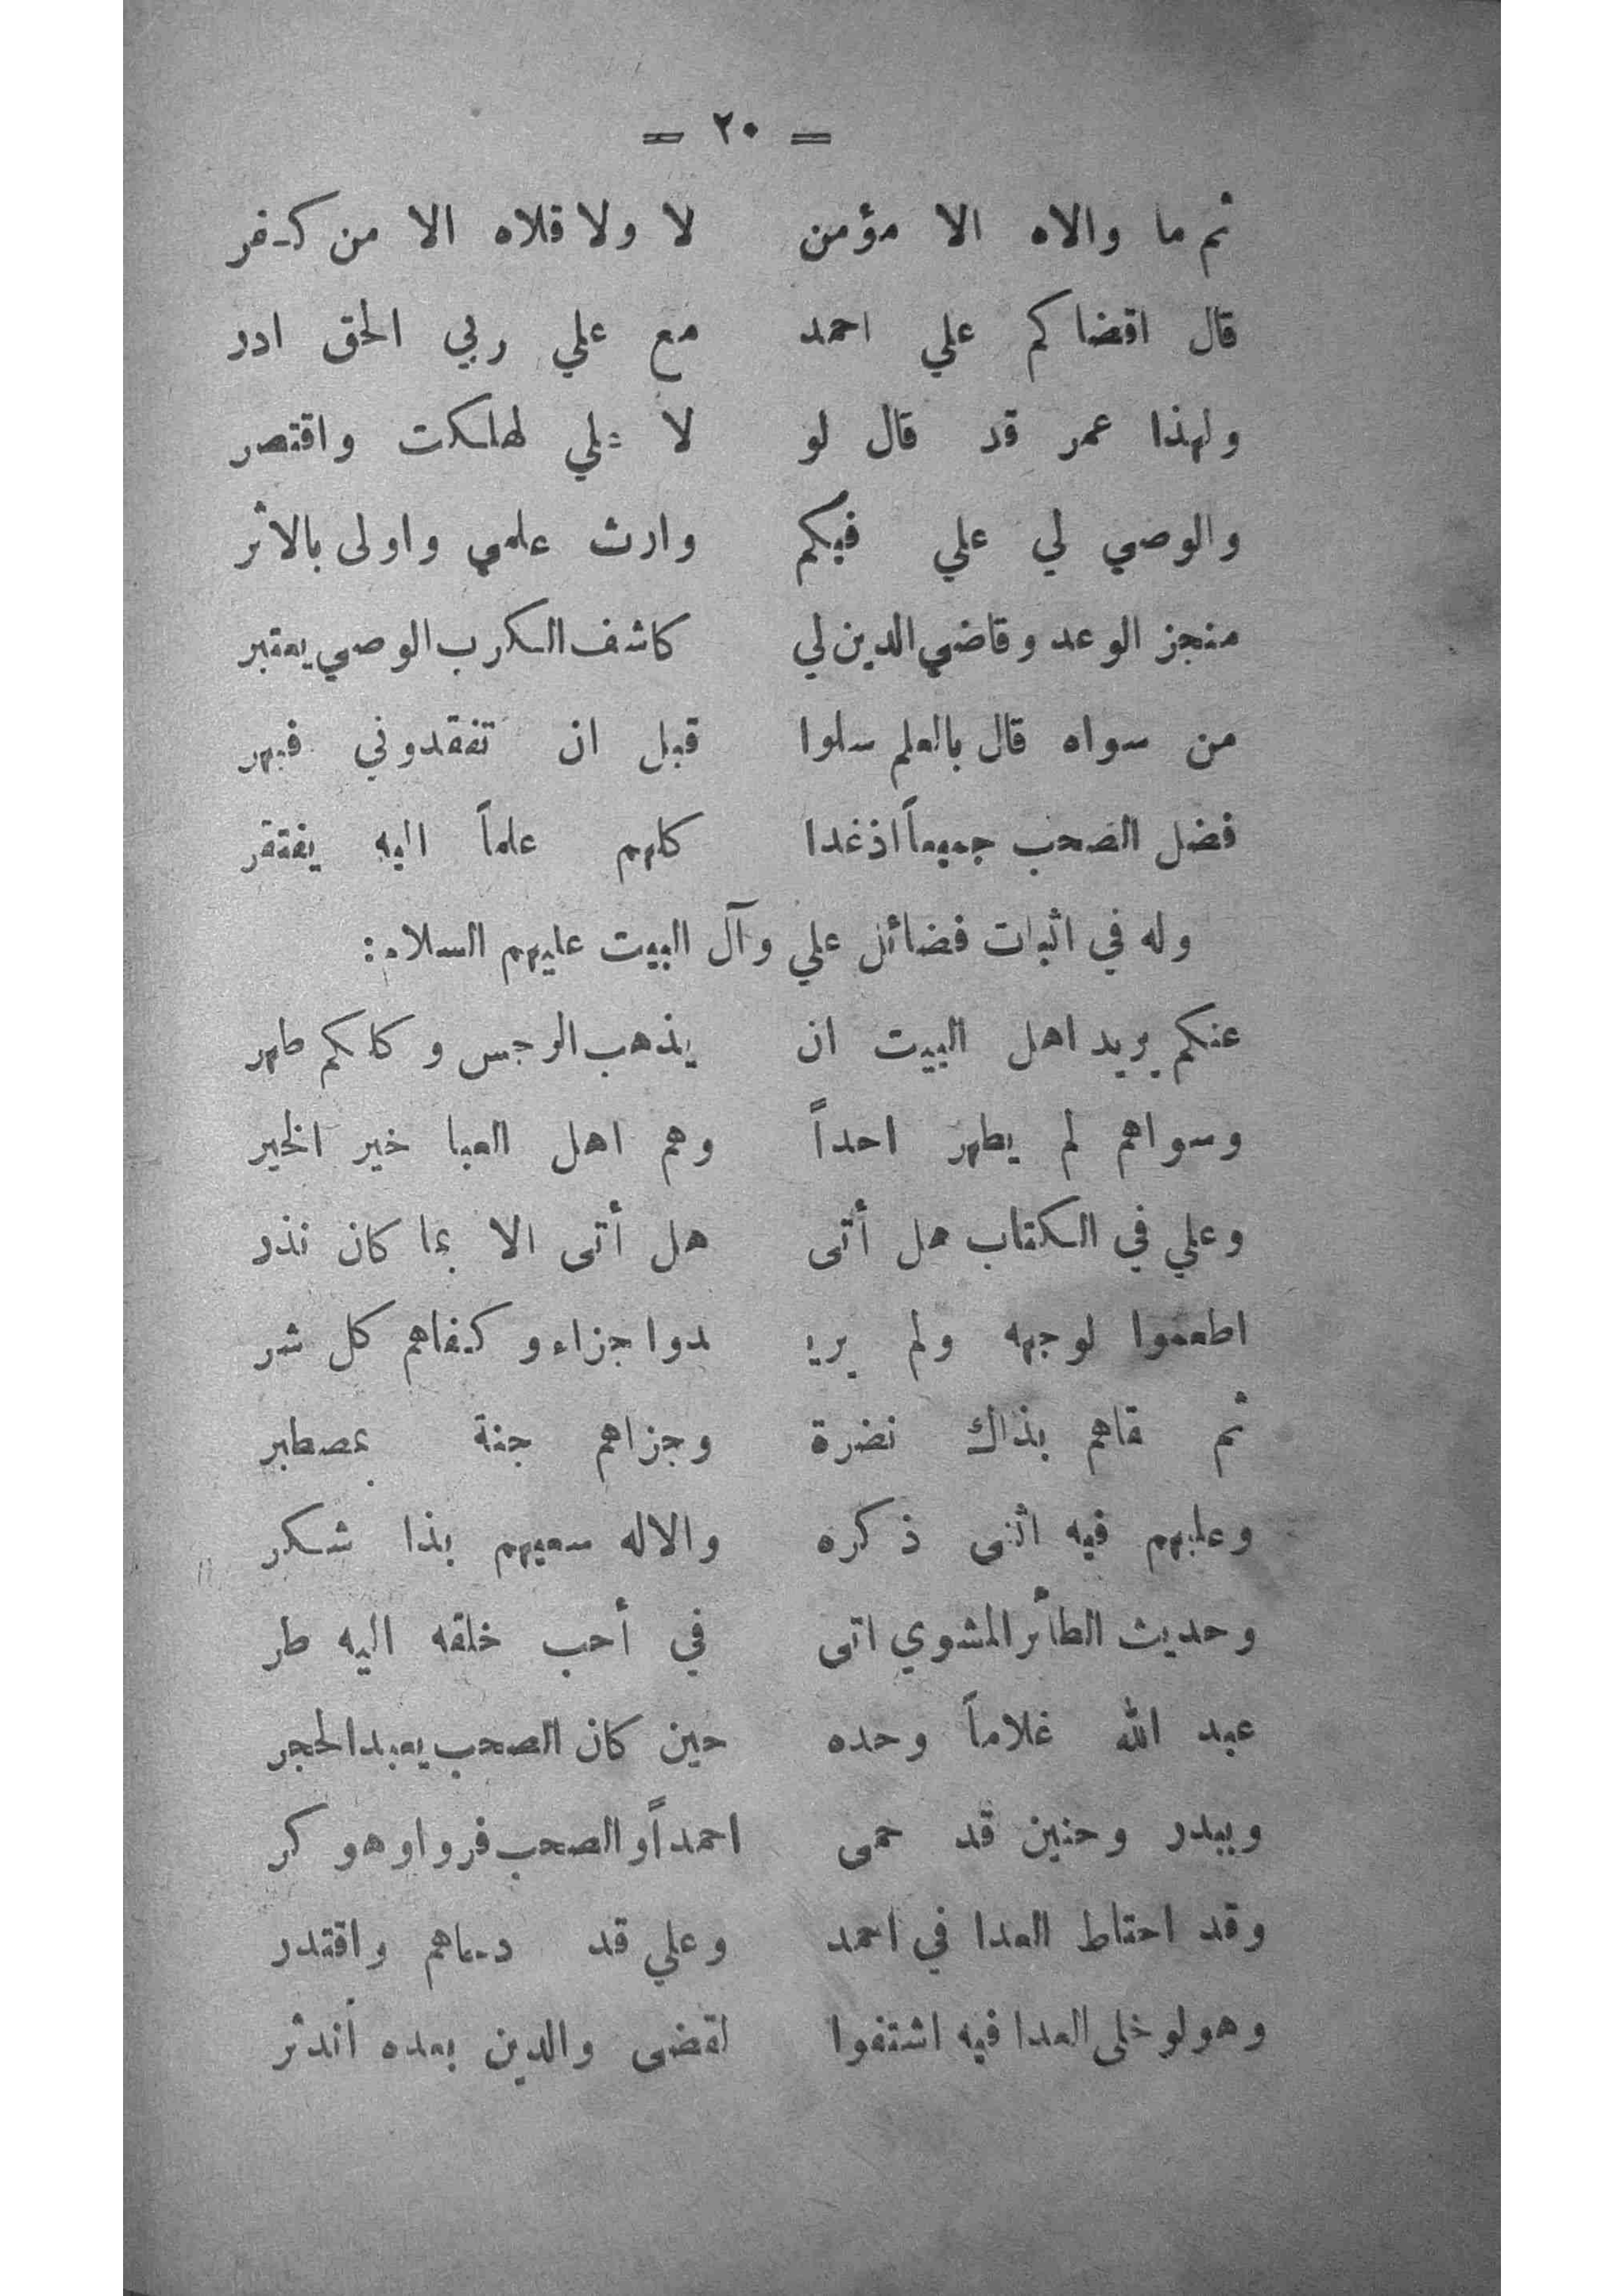 = ٢٠ =
ثم ما والاه الا مؤمن لا ولا قلاه الا من كفر
قال اقضاكم علي احمد مع علي ربي الحق ادر
ولهذا عمر قد قال لو لا علي لهلكت واقتصر
والوصي لي علي فيكم وارث علمي واولى بالاثر
منجز الوعد وقاضي الدين لي كاشف الكرب الوصي يعتبر
من سواه قال بالعلم سلوا قبل ان تفقدوني فبهر
فضل الصحب جميعاً اذ غدا كلهم علماً اليه يفتقر
وله في اثبات فضائل علي وآل البيت عليهم السلام:
عنكم يريد اهل البيت ان يذهب الرجس وكلكم طهر
وسواهم لم يطهر احداً وهم اهل العبا خير الخير
وعلي في الكتاب هل أتى هل أتى الا بما كان نذر
اطعموا لوجهه ولم يريـ ـدوا جزاء وكفاهم كل شر
ثم قاهم بذاك نضرة وجزاهم جنة بمصطبر
وعليهم فيه اثنى ذكره والاله سعيهم بذا شكر
وحديث الطائر المشوي اتى في أحب خلقه اليه طر
عبد الله غلاماً وحده حين كان الصحب يعبد الحجر
وببدر وحنين قد حمى احمداً والصحب فروا وهو كر
وقد احتاط العدا في احمد وعلي قد دهاهم واقتدر
وهو لو خلى العدا فيه اشتفوا لقضى والدين بعده اندثر